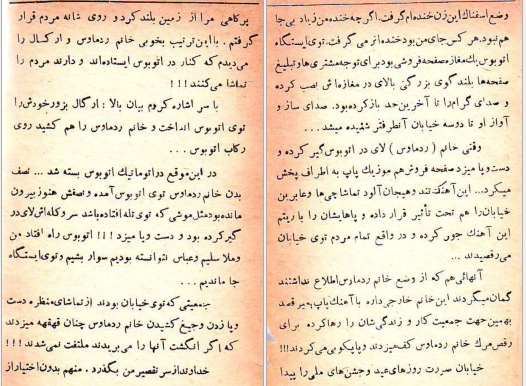 وضع اسفناک این زن خنده‌ام گرفت. اگرچه خنده من زیاد بی‌جا
هم نبود. هر کس جای من بود خنده‌اش می گرفت. توی ایستگاه
اتوبوس یک مغازه صفحه فروشی بود برای توجه مشتری ها و تبلیغ
صفحه‌ها بلندگوی بزرگی بالای در مغازه‌اش نصب کرده
و صدای گرام را تا آخرین حد باز کرده بود. صدای ساز و
آواز او تا دوسه خیابان آنطرفتر شنیده میشد...
وقتی خانم ( ردماوس ) لای در اتوبوس گیر کرده و
دست وپا میزد صفحه فروش هم موزیک پاپ به اطراف پخش
میکرد... این آهنگ تند وهیجان آلود تماشاچی‌ها و عابرین
خیابان را هم تحت تأثیر قرار داده و پاهایشان را با ریتم
این آهنگ جور کرده و در واقع تمام مردم توی خیابان
می‌رقصیدند ...
آنهائی هم که از وضع خانم ردماوس اطلاع نداشتند
گمان میکردند این خانم خارجی داره با آهنگ پاپ میرقصد
بهمین جهت جمعیت کار و زندگی شان را رها کرده برای
رقص مرگ خانم ردماوس کف میزدند و پایکوبی می‌کردند!!!
خیابان صورت روزهای عید و جشن‌های ملی را پیدا
پرکاهی مرا از زمین بلند کرد و روی شانه مردم قرار
گرفتم . با این ترتیب بخوبی خانم ردماوس و ارکسال را
می‌دیدم که کنار در اتوبوس ایستاده‌اند و دارند مردم را
تماشا می‌کنند !!!
با سر اشاره کردم بیان بالا : ارکال بزور خودش را
توی اتوبوس انداخت و خانم ردماوس را هم کشید روی
رکاب اتوبوس . . .
در این موقع در اتوماتیک اتوبوس بسته شد ... نصف
بدن خانم ردماوس توی اتوبوس آمده و نصفش هنوز بیرون
مانده بود مثل موشی که توی تله افتاده باشد سروکله‌اش لای در
گیر کرده بود و دست وپا میزد !!! اتوبوس راه افتاد من
وملا سلیم و عباس نتوانسته بودیم سوار بشیم و توی ایستگاه
جا ماندیم . . .
جمعیتی که توی خیابان بودند از تماشای منظره دست
وپا زدن و جیغ کشیدن خانم ردماوس چنان قهقهه میزدند
که اگر انگشت آنها را می‌بریدند ملتفت نمی‌شدند !!!
خداوند از سر تقصیر من بگذرد . منهم بدون اختیار از